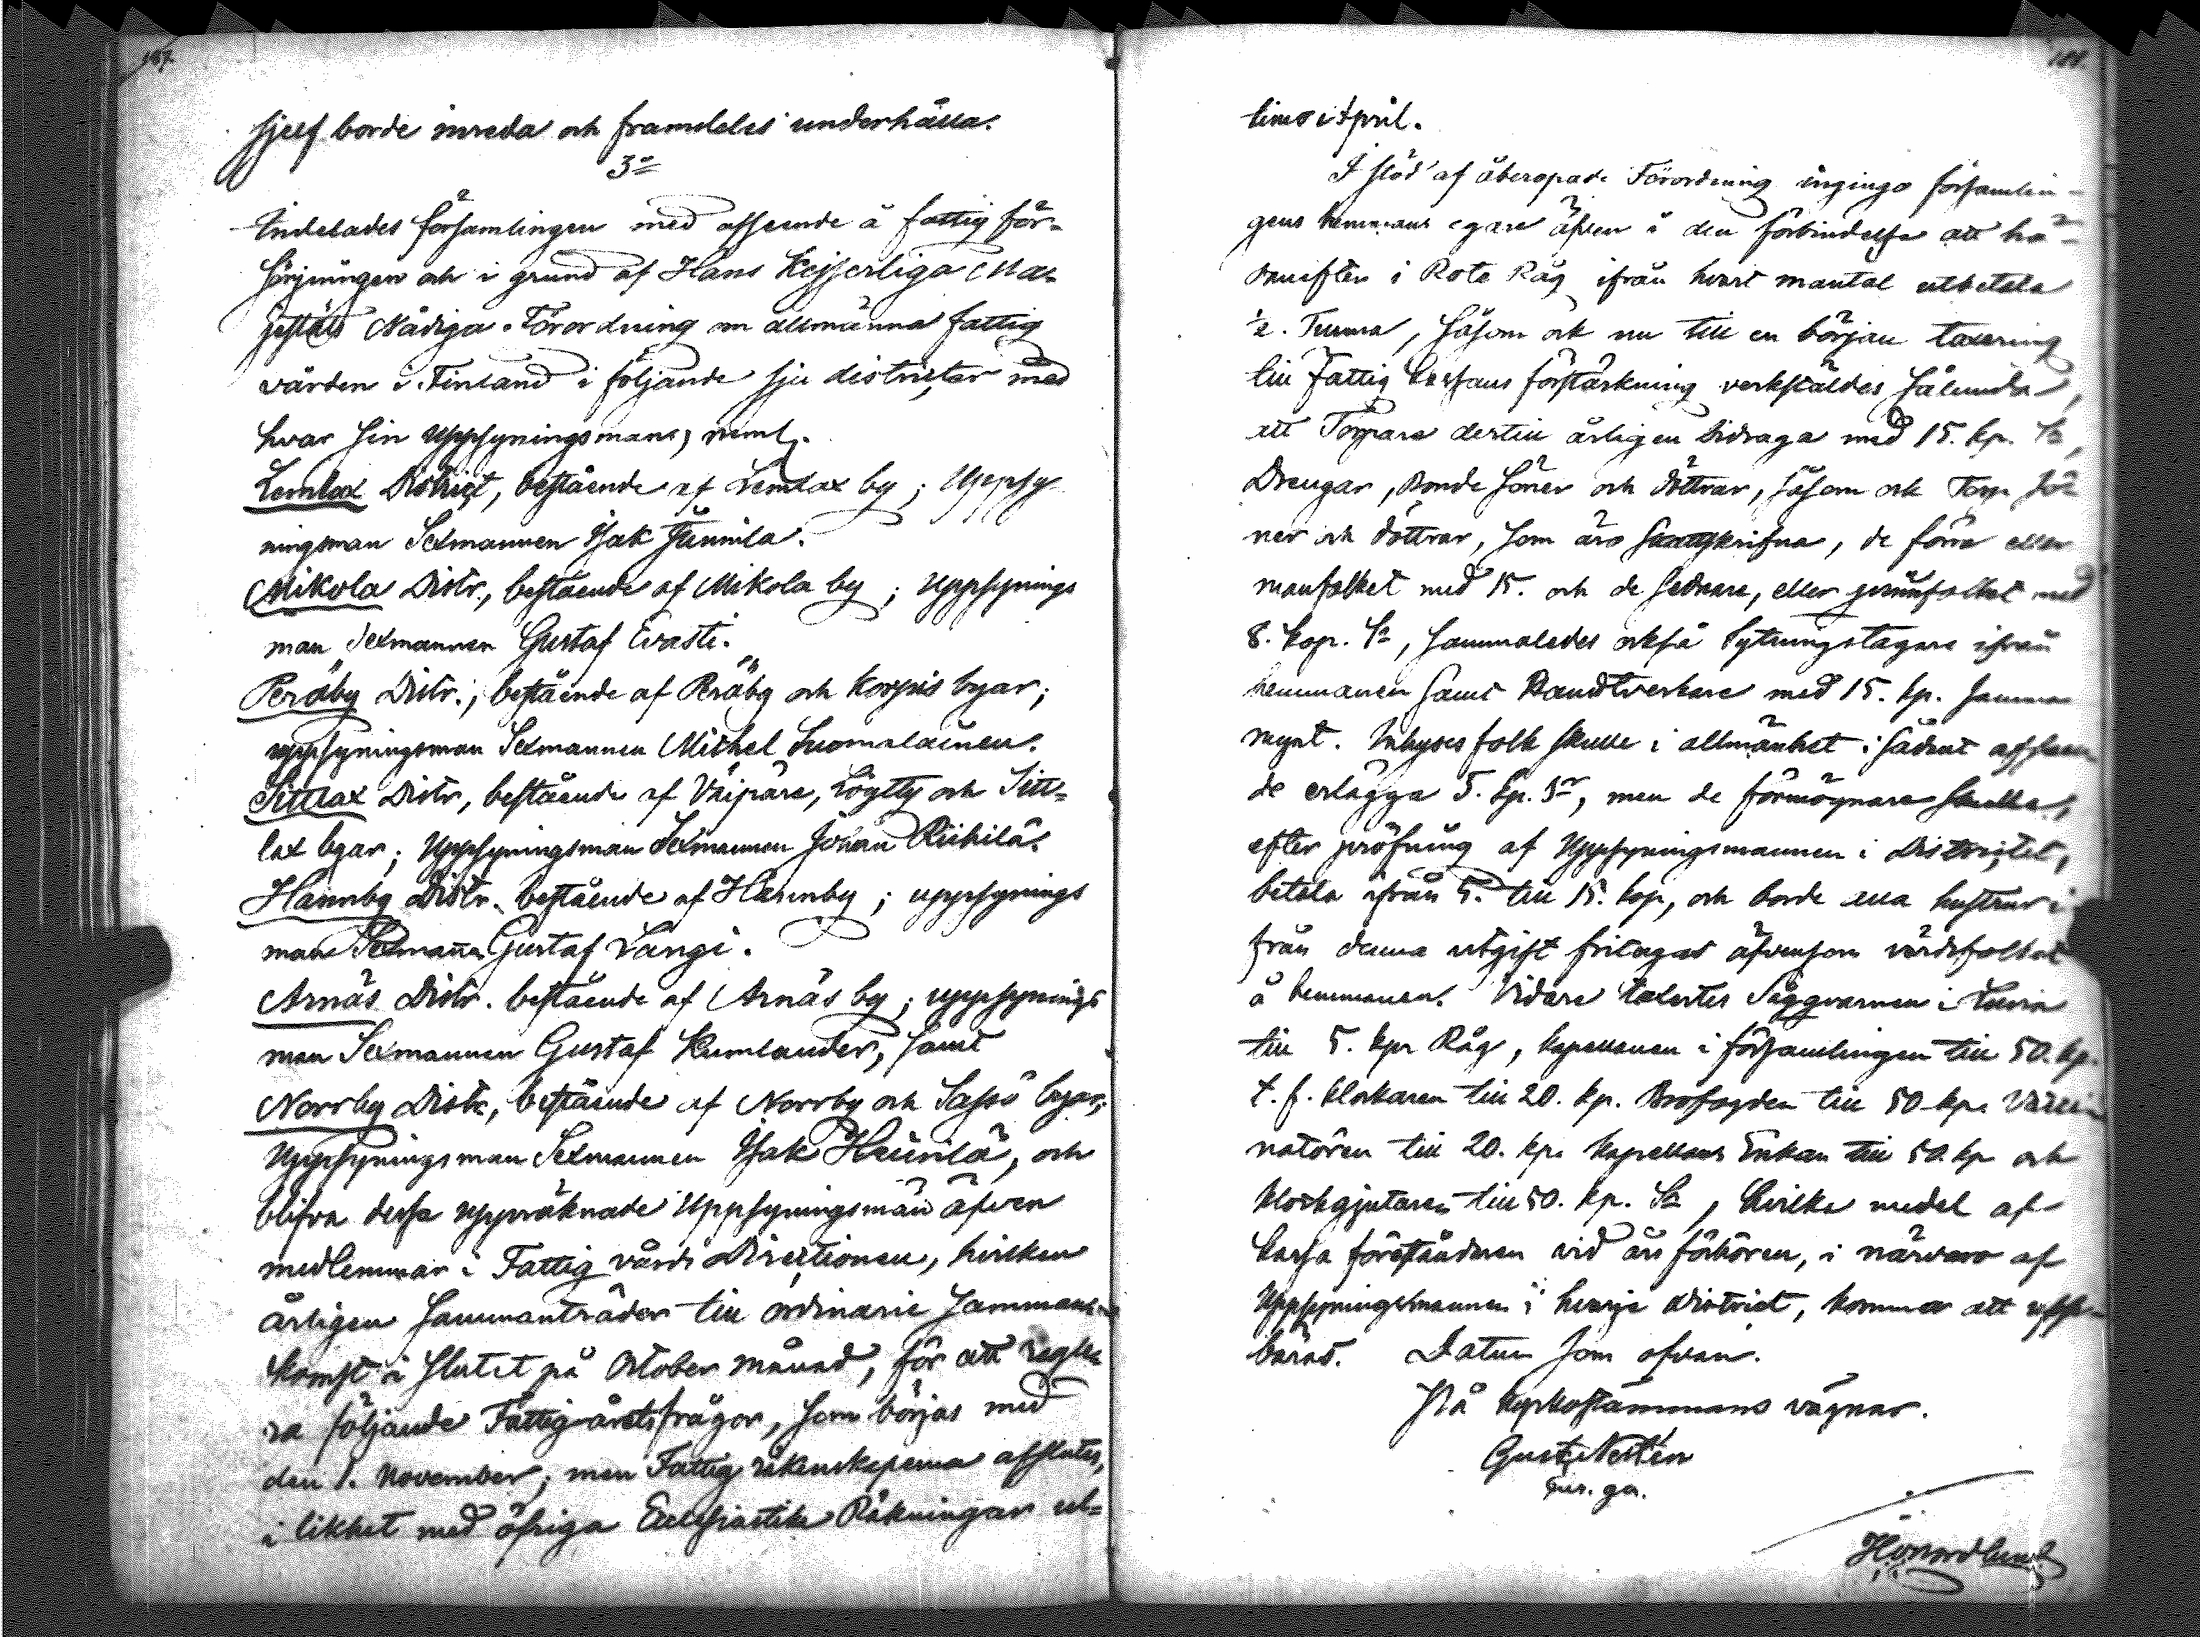 187.
sjelf borde inreda och framdeles underhålla.
3:o
Indelades församlingen med afseende å fattig för-
sörjningen och i grund af Hans Kejserliga Ma-
jestäts Nådiga Förordning om allmänna fattig
vården i Finland i följande sju districter med
hvar sin Uppsyningsman, neml.
Lemlax District, bestående af Lemlax by; Uppsy
ningsman Sexmannen Isak Junnila.
Mikola Distr., bestående af Mikola by; Uppsynings
man Sexmannen Gustaf Evasti.
Peräby Distr., bestående af Peräby och Korpis byar;
uppsyningsman Sexmannen Michel Suomalainen.
Sittlax Distr, bestående af Viipare, Löytty och Sitt-
lax byar; Uppsyningsman Sexmannen Johan Riihilä.
Hannby Distr. bestående af Hannby; uppsynings
man Sexmann Gustaf Langi.
Arnäs Distr. bestående af Arnäs by; uppsynings
man Sexmannen Gustaf Kumlander, samt
Norrby Distr, bestående af Norrby och Sassö byar;
Uppsyningsman Sexmannen Isak Heinilä, och
blifva dessa uppräknade Uppsyningsmän äfven
medlemmar i Fattigvårds Directionen, hvilken
årligen sammanträder till ordinarie samman-
komst i slutet på October månad, för att regle
ra följande Fattigårets frågor, som börjas med
den 1. November; men Fattig räkenskaperna afslutes,
i likhet med öfriga Ecclesiastike Räkningar ul-
188
timo i April.
I stöd af åberopade Förordning ingingo församlin-
gens hemmans egare äfven i den förbindelse att hä-
danefter i Rote Råg ifrån hvart mantal utbetala
1/2. Tunna, såsom ock nu till en början taxering
till Fattig Cassans förstärkning verkstäldes sålunda,
att Torpare dertill årligen bidraga med 15. kp. Sr,
Drengar, Bonde söner och döttrar, såsom ock Torp. sö
ner och döttrar, som äro skattskrifna, de förra eller
manfolket med 15. och de sednare, eller qvinnfolket med
8. kop. Sr, sammaledes också Sytningstagare ifrån
hemmanen samt Handtverkare med 15. kp. samma
mynt. Inhyses folk skulle i allmänhet i sådant afseen
de erlägga 5. kp. Sr, men de förmögnare skulle,
efter pröfning af Uppsyningsmannen i Districtet,
betala ifrån 5. till 15. kop, och borde alla hustrur i
från denna utgift fritagas äfvensom värdsfolket
å hemmanen. Vidare taxertes Såggvarnen i
till 5. kpr Råg, kapellanen i församlingen till 50. kp.
t. f. klockaren till 20. kp. Brofogden till 50 kp. Vaccin
natören till 20. kp. kapellans Enkan till 50. kp och
klockgjutaren till 50. kp. Sr, hvilka medel af
Cassa föreståndaren vid års förhören, i närvaro af
Uppsyningsmannen i hvarje District, komma att upp
bäras. Datum som ofvan.
På kyrkostämmans vägnar.
Gust. Nestén